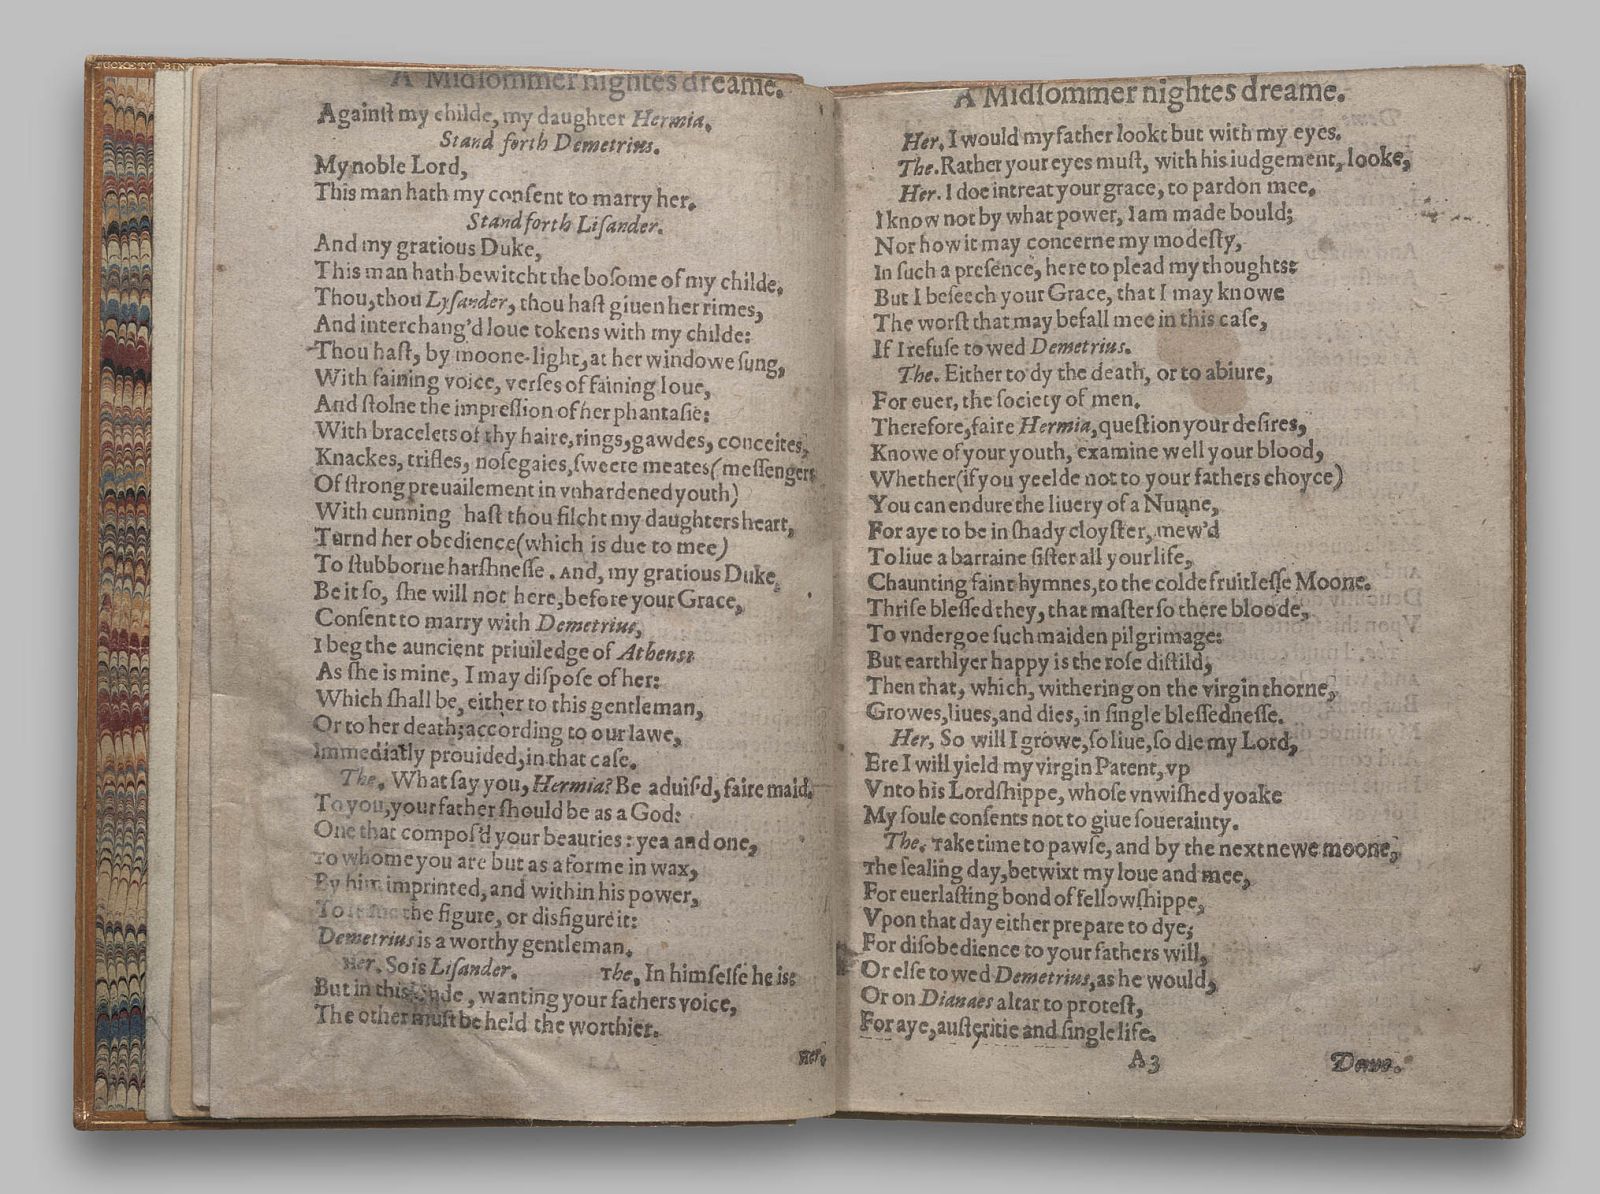 A Midſommer nightes dreame.
Againſt my childe, my daughter Hermia.
Stand forth Demetrius.
My noble Lord,
This man hath my conſent to marry her.
Stand forth Liſander.
And my gratious Duke,
This man hath bewitcht the boſome of my childe.
Thou, thou Lyſander, thou haſt giuen her rimes,
And interchang'd loue tokens with my childe:
Thou haſt, by moone-light, at her windowe ſung,
With faining voice, verſes of faining loue,
And ſtolne the impreſſion of her phantaſie:
With bracelets of thy haire, rings, gawdes, conceites,
Knackes, trifles, noſegaies, ſweete meates (meſſengers
Of ſtrong preuailement in vnhardened youth)
With cunning haſt thou filcht my daughters heart,
Turnd her obedience (which is due to mee)
To ſtubborne harſhneſſe. And, my gratious Duke,
Be it ſo, ſhe will not here, before your Grace,
Conſent to marry with Demetrius,
I beg the auncient priuiledge of Athens:
As ſhe is mine, I may diſpoſe of her:
Which ſhall be, either to this gentleman,
Or to her death; according to our lawe,
Immediatly prouided, in that caſe.
The. What ſay you, Hermia? Be aduiſ'd, faire maid.
To you, your father ſhould be as a God:
One that compoſ'd your beauties: yea and one,
To whome you are but as a forme in wax,
By him imprinted, and within his power,
To the figure, or disfigure it:
Demetrius is a worthy gentleman.
Her. So is Liſander. The. In himſelfe he is:
But in this kinde, wanting your fathers voice,
The other muſt be held the worthier.
Her.
A Midſommer nightes dreame.
Her. I would my father lookt but with my eyes.
The. Rather your eyes muſt, with his iudgement, looke,
Her. I doe intreat your grace, to pardon mee.
I know not by what power, I am made bould;
Nor how it may concerne my modeſty,
In ſuch a preſence, here to plead my thoughts:
But I beſeech your Grace, that I may knowe
The worſt that may befall mee in this caſe,
If I refuſe to wed Demetrius.
The. Either to dy the death, or to abiure,
For euer, the ſociety of men.
Therefore, faire Hermia, queſtion your deſires,
Knowe of your youth, examine well your blood,
Whether (if you yeelde not to your fathers choyce)
You can endure the liuery of a Nunne,
For aye to be in ſhady cloyſter, mew'd
To liue a barraine ſiſter all your life,
Chaunting faint hymnes, to the colde fruitleſſe Moone.
Thriſe bleſſed they, that maſter ſo there bloode,
To vndergoe ſuch maiden pilgrimage:
But earthlyer happy is the roſe diſtild,
Then that, which, withering on the virgin thorne,
Growes, liues, and dies, in ſingle bleſſedneſſe.
Her, So will I growe, ſo liue, ſo die my Lord,
Ere I will yield my virgin Patent, vp
Vnto his Lordſhippe, whoſe vnwiſhed yoake
My ſoule conſents not to giue ſouerainty.
The. Take time to pawſe, and by the next newe moone,
The ſealing day, betwixt my loue and mee,
For euerlaſting bond of fellowſhippe,
Vpon that day either prepare to dye,
For diſobedience to your fathers will,
Or elſe to wed Demetrius, as he would,
Or on Dianaes altar to proteſt,
For aye, auſteritie and ſingle life.
A3
Deme.